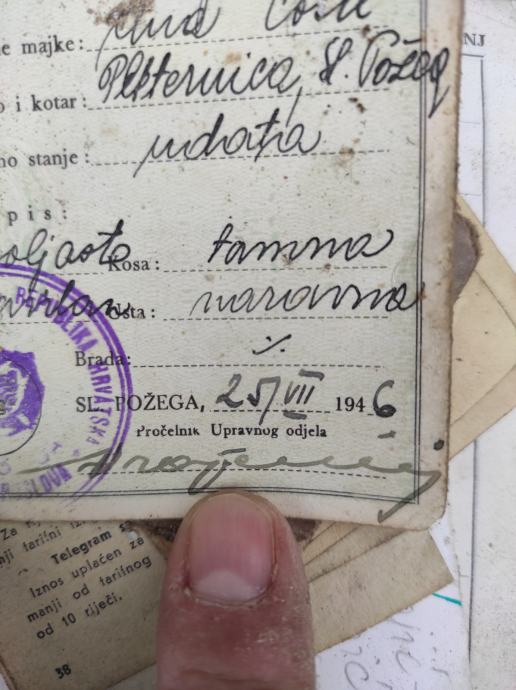 NJ
e majke:
Pleternica, Sl. Požega
o i kotar:
no stanje: udata
pis:
Kosa: tamna
Usta: naravna
Brada: ·/.
SL. POŽEGA, 25/VII 1946
Pročelnik Upravnog odjela
REPUBLIKA HRVATSKA
Za
nji tarifni
Telegram s
Iznos uplaćen za
manji od tarifnog
od 10 riječi.
38